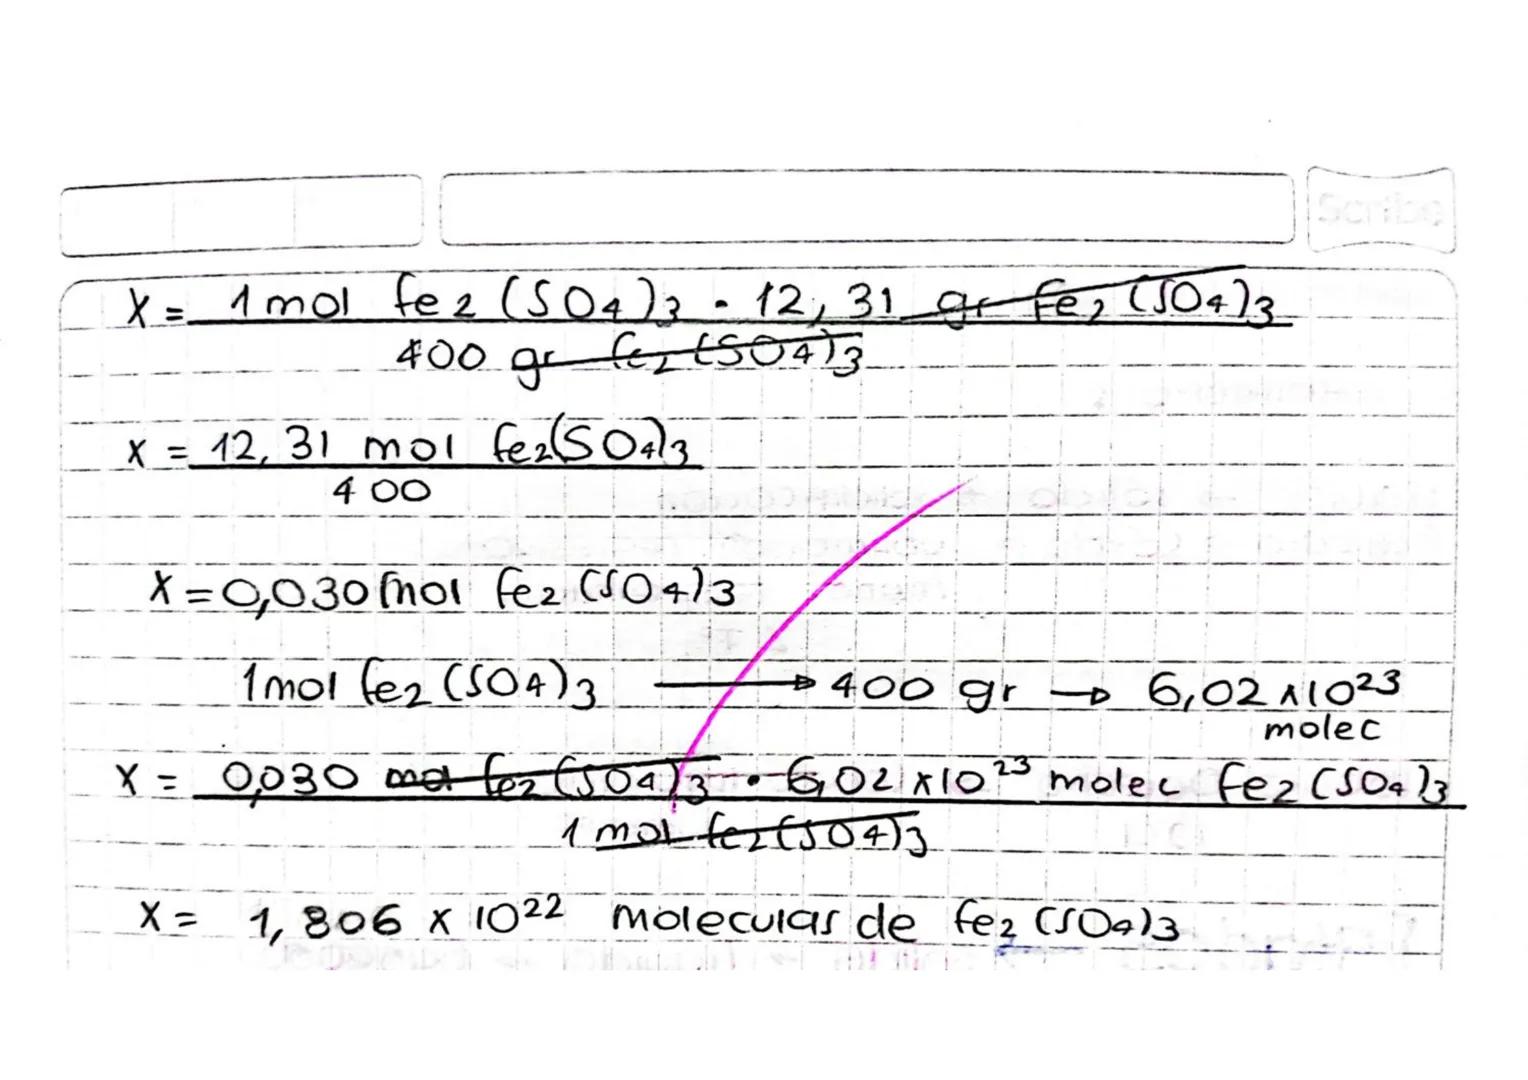 Scribe
X = 1 mol fe2 (SO4)3 · 12,31 gr fe2 (SO4)3
400 gr fe2 (SO4)3
X = 12,31 mol fe2(SO4)3
400
X = 0,030 mol fe2 (SO4)3
1 mol fe2 (SO4)3 → 400 gr → 6,02 x 10²³
molec
X = 0,030 mol fe2 (SO4)3 · 6,02 x 10²³ molec fe2 (SO4)3
1 mol fe2 (SO4)3
X = 1,806 x 10²² moleculas de fe2 (SO4)3